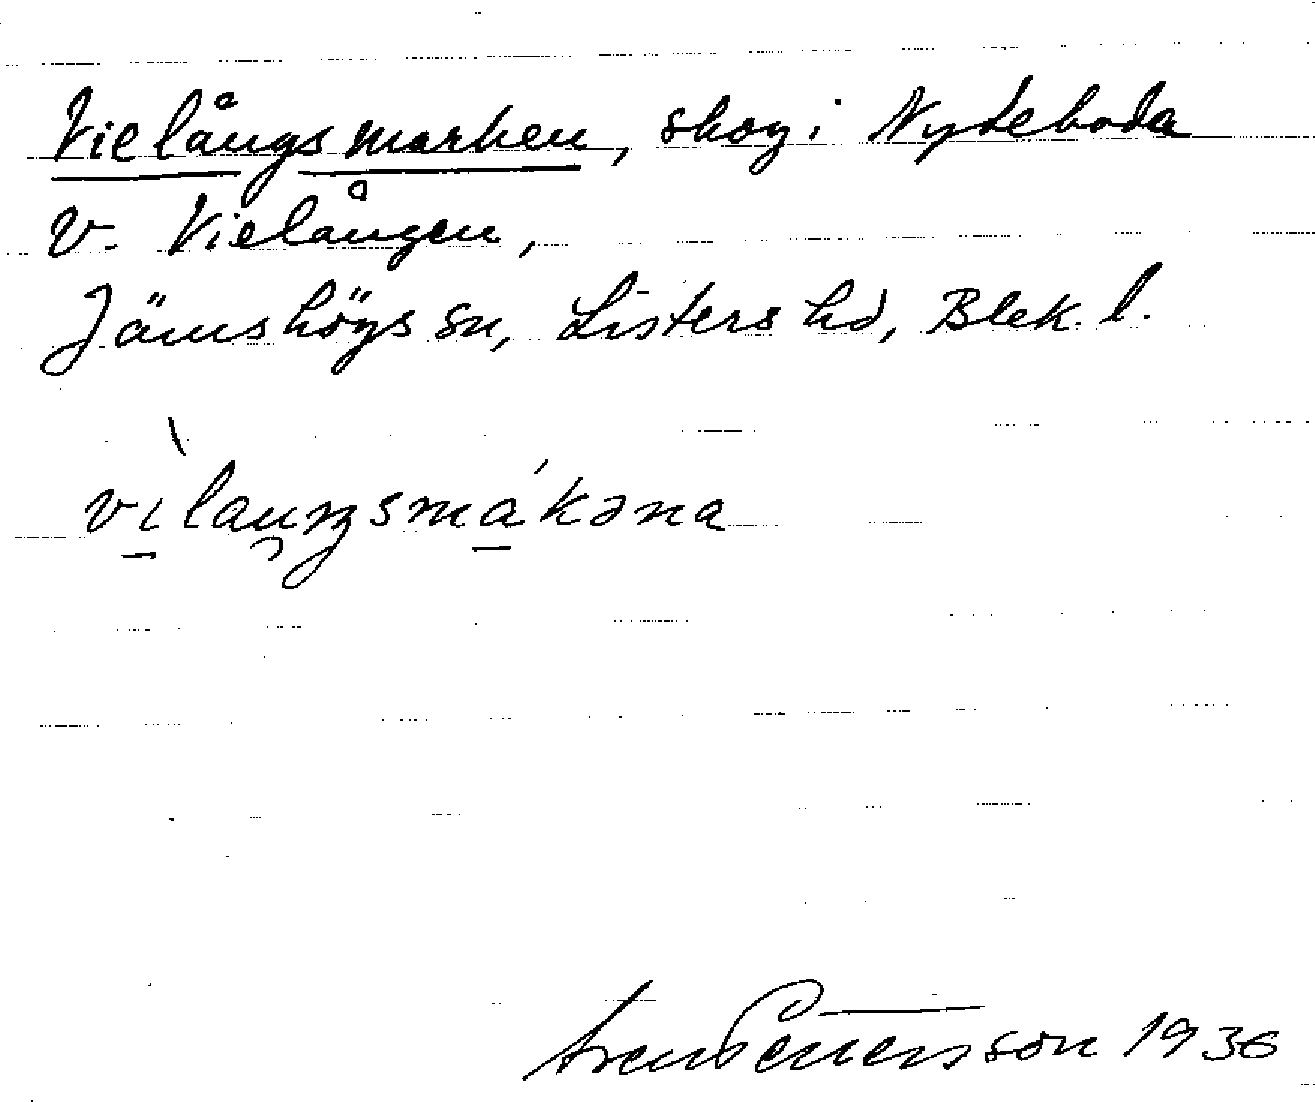 Vielångsmarken, skog i Nyteboda
V. Vielången,
Jämshögs sn, Listers hd, Blek. l.
vìlauŋsmákəna
Sven Petersson 1936